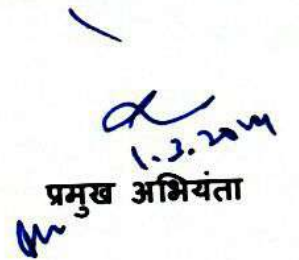 1.3.2014
प्रमुख अभियंता